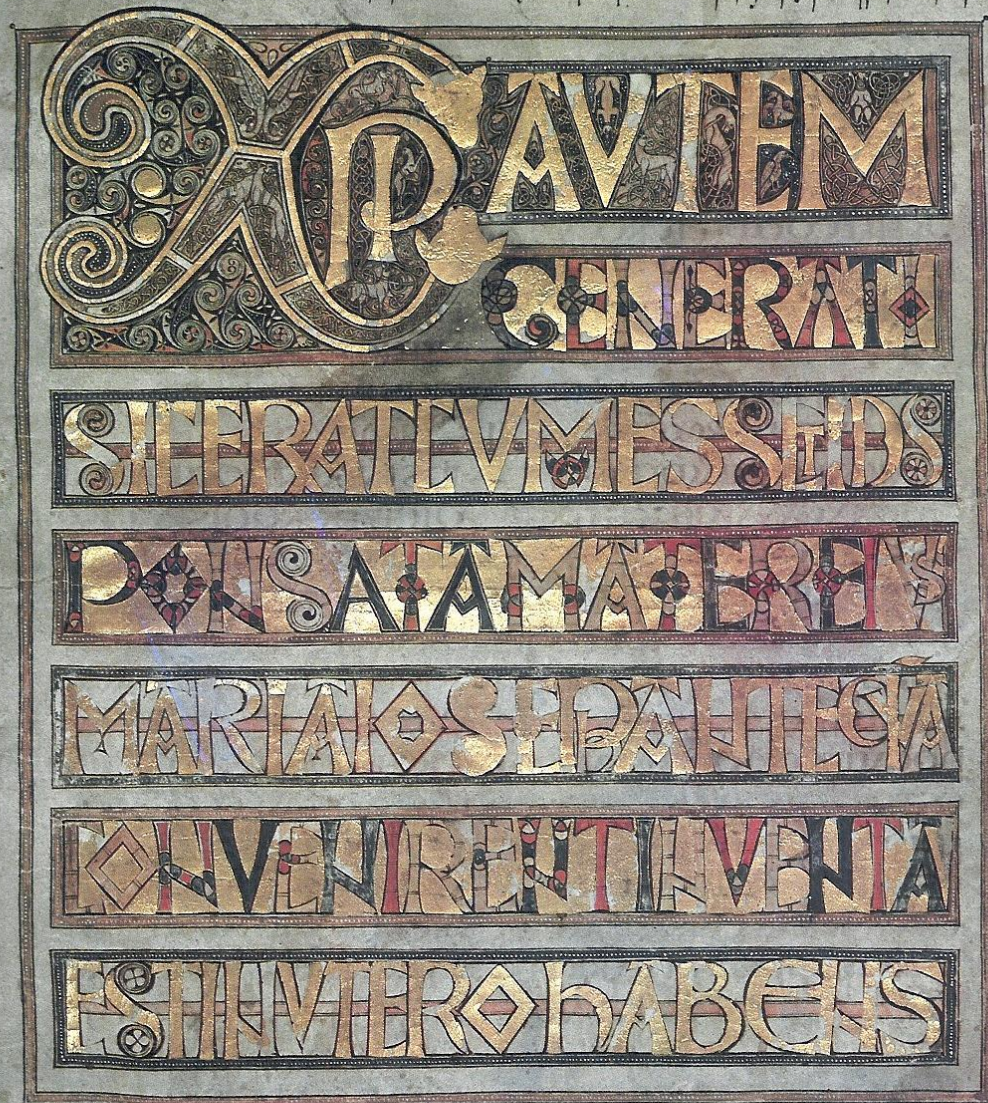 XPI AVTEM
GENERATIO
SIC ERAT CVM ESSET DIS
PONSATA MATER EIVS
MARIA IOSEPH ANTEQVĀ
CONVENIRENT INVENTA
EST IN VTERO hABENS